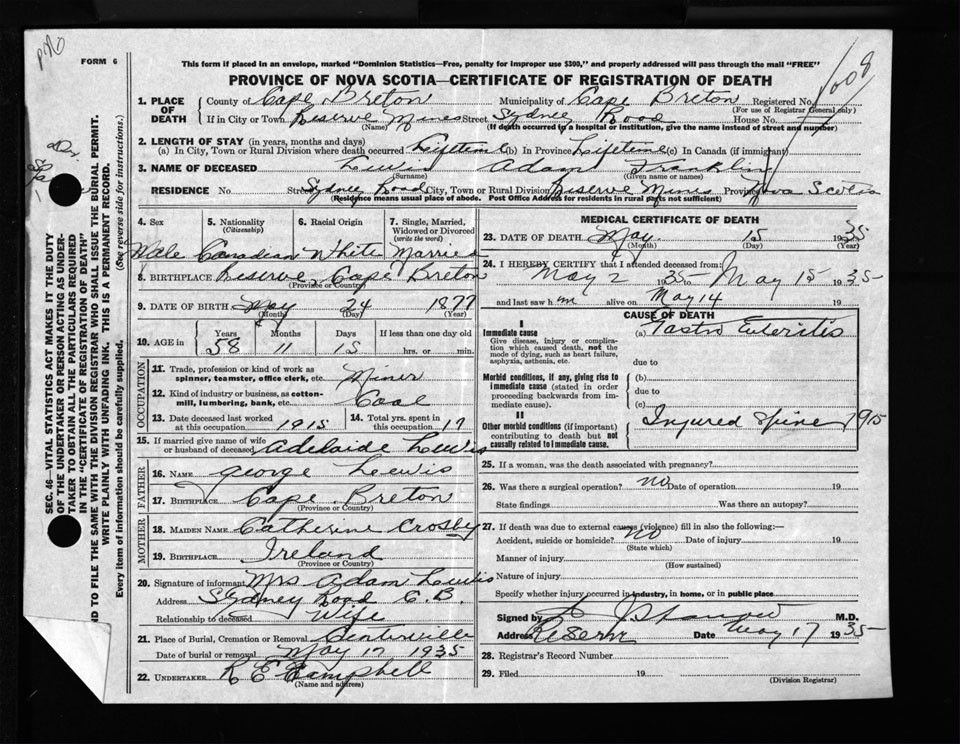 FORM 6
This form if placed in an envelope, marked "Dominion Statistics—Free, penalty for improper use $300," and properly addressed will pass through the mail "FREE"
PROVINCE OF NOVA SCOTIA—CERTIFICATE OF REGISTRATION OF DEATH
1. PLACE OF DEATH
County of Cape Breton Municipality of Cape Breton Registered No. 608
(For use of Registrar General only)
If in City or Town Reserve Mines Street Sydney Road House No.
(Name) (If death occurred in a hospital or institution, give the name instead of street and number)
2. LENGTH OF STAY (in years, months and days)
(a) In City, Town or Rural Division where death occurred Lifetime (b) In Province Lifetime (c) In Canada (if immigrant)
3. NAME OF DECEASED Lewis Adam Franklin
(Surname) (Given name or names)
RESIDENCE No. Street Sydney Road City, Town or Rural Division Reserve Mines Province Nova Scotia
(Residence means usual place of abode. Post Office Address for residents in rural parts not sufficient)
4. Sex 5. Nationality (Citizenship) 6. Racial Origin 7. Single, Married, Widowed or Divorced (write the word)
Male Canadian White Married
8. BIRTHPLACE Reserve Cape Breton
(Province or Country)
9. DATE OF BIRTH 24 1877
(Month) (Day) (Year)
10. AGE in Years Months Days If less than one day old
58 11 15 hrs. or min.
OCCUPATION
11. Trade, profession or kind of work as spinner, teamster, office clerk, etc. Miner
12. Kind of industry or business, as cotton-mill, lumbering, bank, etc. Coal
13. Date deceased last worked at this occupation 1915 14. Total yrs. spent in this occupation 17
15. If married give name of wife or husband of deceased Adelaide Lewis
FATHER
16. NAME George Lewis
17. BIRTHPLACE Cape Breton
(Province or Country)
MOTHER
18. MAIDEN NAME Catherine Crosby
19. BIRTHPLACE Ireland
(Province or Country)
20. Signature of informant Mrs Adam Lewis
Address Sydney Road C.B.
Relationship to deceased Wife
21. Place of Burial, Cremation or Removal Centerville
Date of burial or removal May 17 1935
22. UNDERTAKER R E Campbell
(Name and address)
MEDICAL CERTIFICATE OF DEATH
23. DATE OF DEATH May 15 1935
(Month) (Day) (Year)
24. I HEREBY CERTIFY that I attended deceased from:
May 2 1935 to May 15 1935
and last saw him alive on May 14 19
CAUSE OF DEATH
I
Immediate cause (a) Gastro Enteritis
Give disease, injury or complication which caused death, not the mode of dying, such as heart failure, asphyxia, asthenia, etc.
due to
Morbid conditions, if any, giving rise to immediate cause (stated in order proceeding backwards from immediate cause).
(b)
due to
(c)
II
Other morbid conditions (if important) contributing to death but not causally related to immediate cause.
Injured Spine 1915
25. If a woman, was the death associated with pregnancy?
26. Was there a surgical operation? no Date of operation 19
State findings Was there an autopsy?
27. If death was due to external causes (violence) fill in also the following:—
Accident, suicide or homicide? no Date of injury 19
(State which)
Manner of injury
(How sustained)
Nature of injury
Specify whether injury occurred in industry, in home, or in public place
Signed by M.D.
Address Reserve Date May 17 1935
28. Registrar's Record Number
29. Filed 19
(Division Registrar)
SEC. 46—VITAL STATISTICS ACT MAKES IT THE DUTY
OF THE UNDERTAKER OR PERSON ACTING AS UNDERTAKER TO OBTAIN ALL THE PARTICULARS REQUIRED
IN THE "CERTIFICATE OF REGISTRATION OF DEATH"
ND TO FILE THE SAME WITH THE DIVISION REGISTRAR WHO SHALL ISSUE THE BURIAL PERMIT.
WRITE PLAINLY WITH UNFADING INK. THIS IS A PERMANENT RECORD.
Every item of information should be carefully supplied. (See reverse side for instructions.)